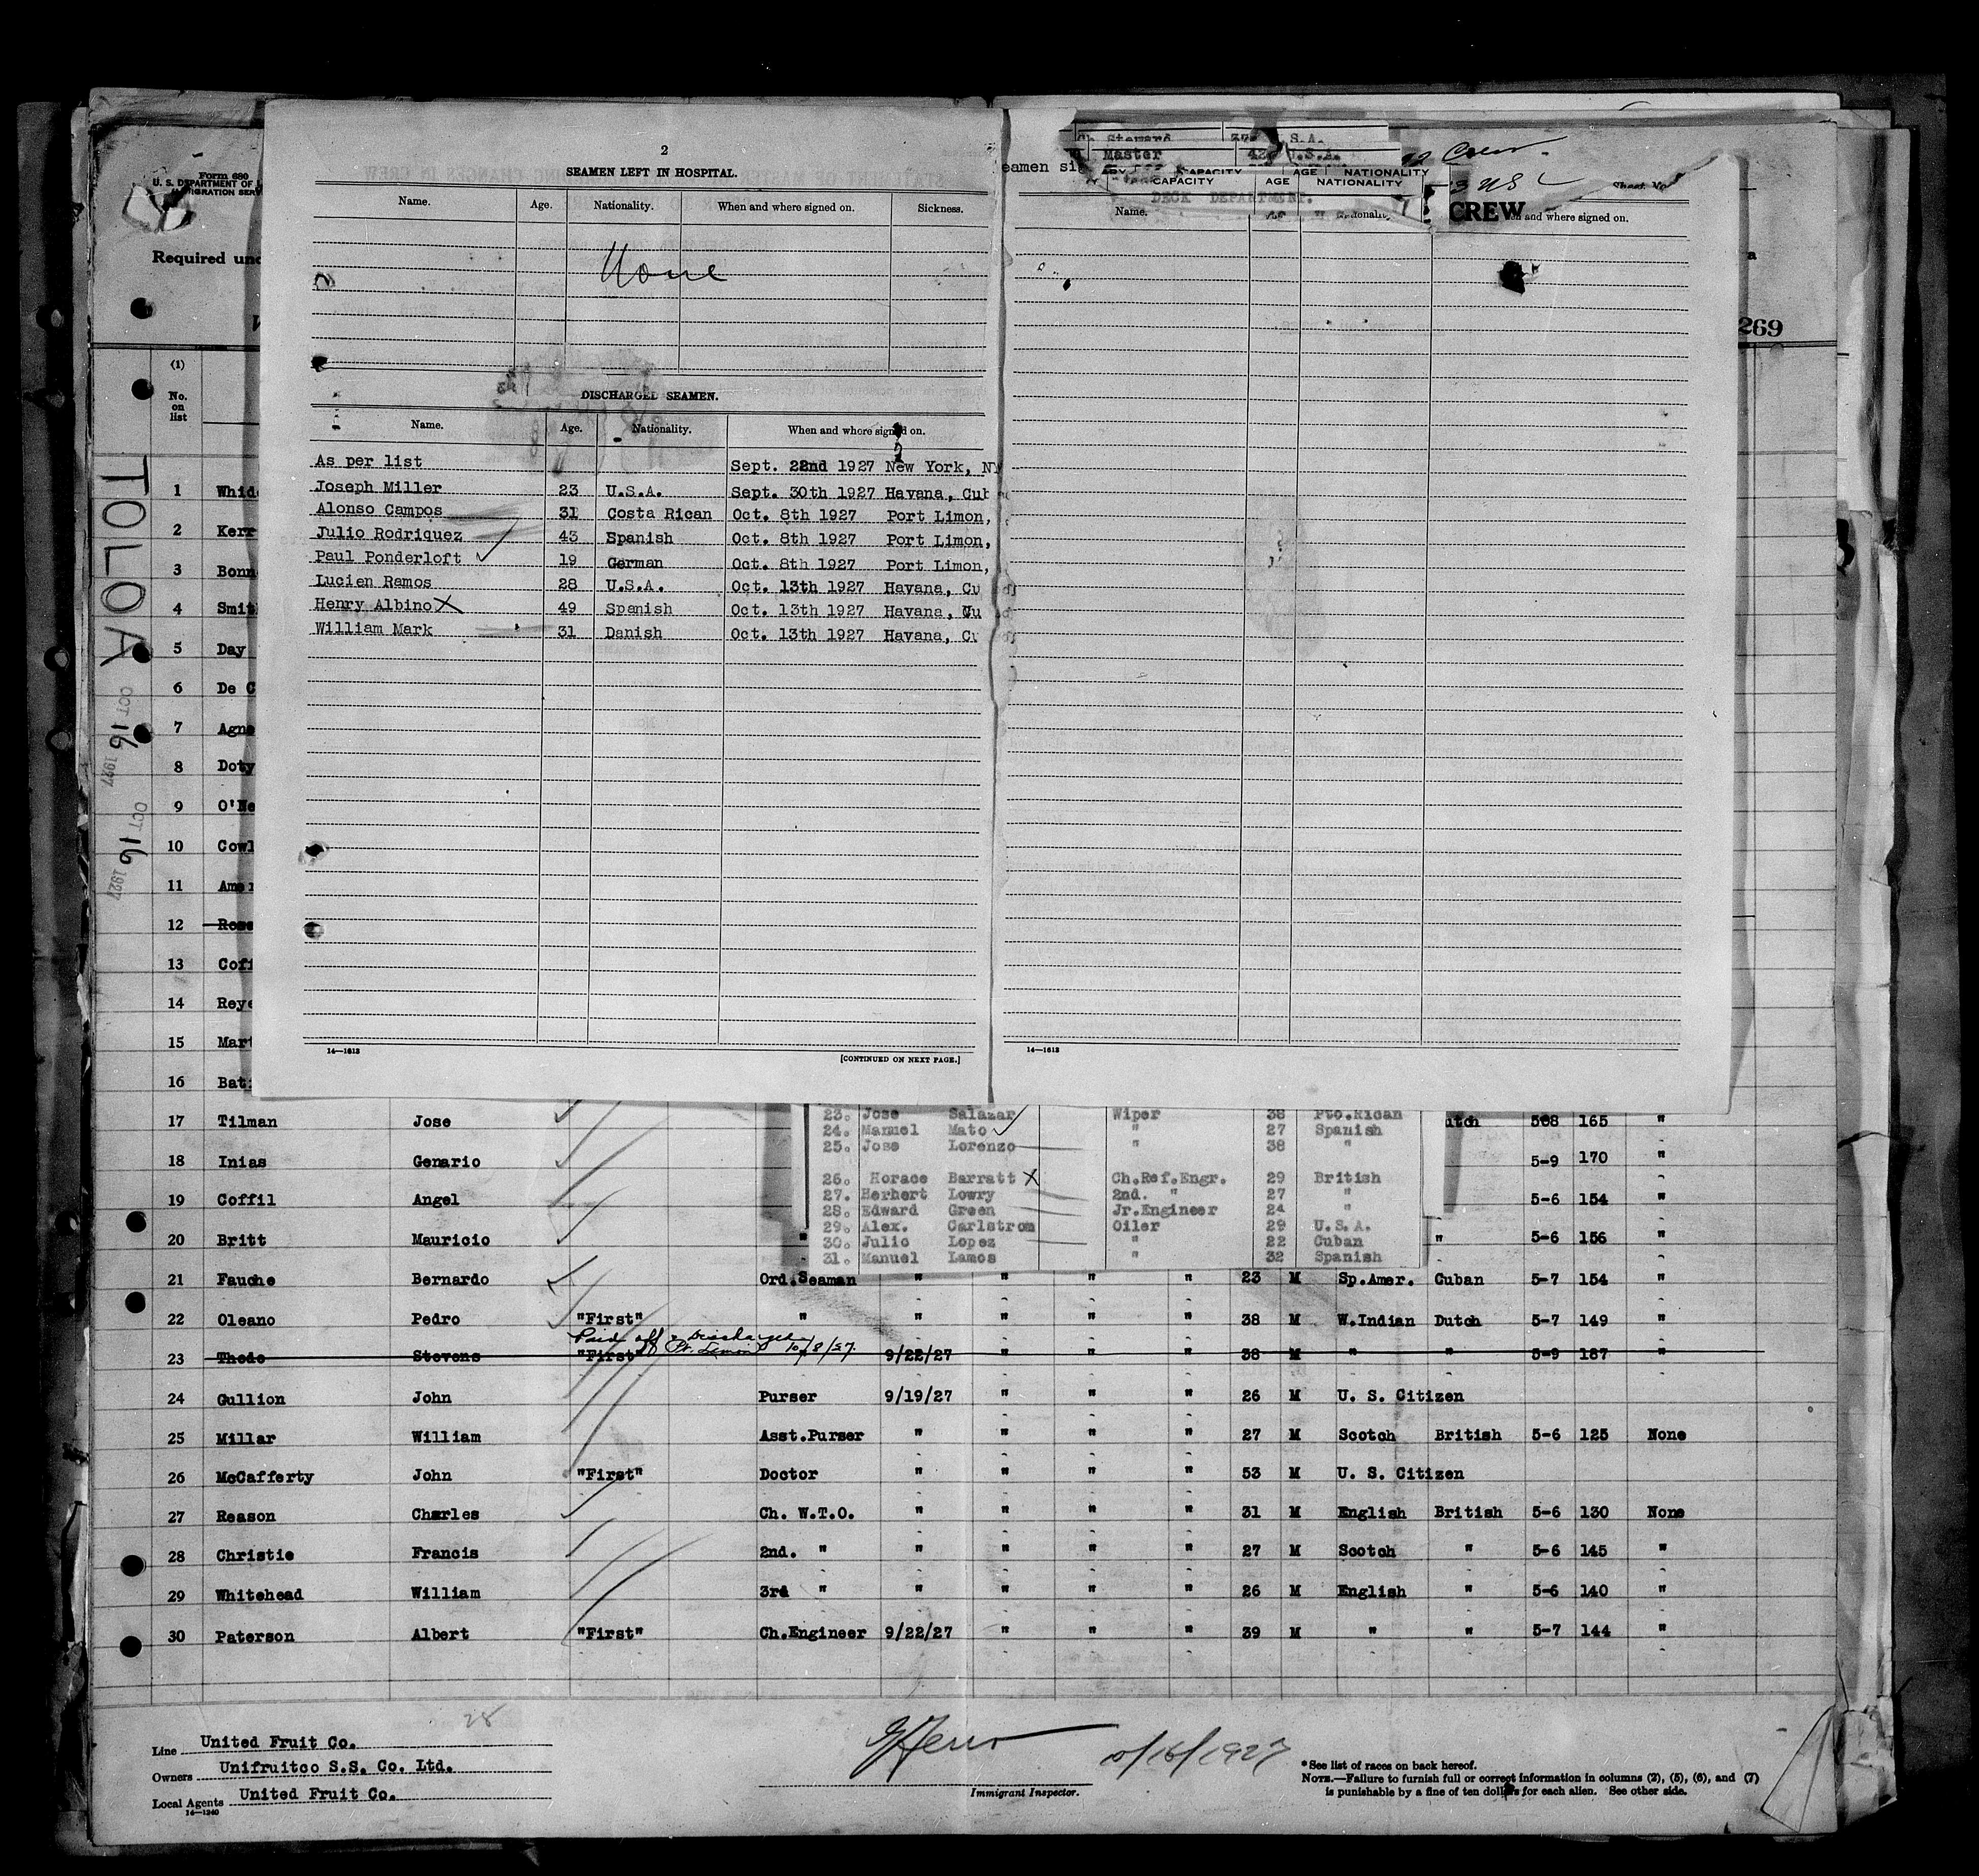 2
SEAMEN LEFT IN HOSPITAL.
Name. Age. Nationality. When and where signed on. Sickness.
None
DISCHARGED SEAMEN.
Name. Age. Nationality. When and where signed on.
As per list Sept. 22nd 1927 New York, NY
Joseph Miller 23 U.S.A. Sept. 30th 1927 Havana, Cub
Alonso Campos 31 Costa Rican Oct. 8th 1927 Port Limon,
Julio Rodriquez 43 Spanish Oct. 8th 1927 Port Limon,
Paul Ponderloft 19 German Oct. 8th 1927 Port Limon,
Lucien Ramos 28 U.S.A. Oct. 13th 1927 Havana, Cu
Henry Albino X 49 Spanish Oct. 13th 1927 Havana, Cu
William Mark 31 Danish Oct. 13th 1927 Havana, Cu
14—1613
[CONTINUED ON NEXT PAGE.]
Ch. Steward 37 S.A.
Master 42 U.S.A.
eamen si
AGE NATIONALITY
CAPACITY AGE NATIONALITY
DECK DEPARTMENT.
Name. and where signed on.
14—1613
Crew.
Sheet No.
CREW
269
Form 680
U. S. DEPARTMENT OF L
IMMIGRATION SERV
Required und
(1)
No.
on
list
TOLOA
OCT 16 1927
OCT 16 1927
1 Whid
2 Kerr
3 Bonn
4 Smit
5 Day
6 De C
7 Agne
8 Doty
9 O'Ne
10 Cowl
11 Amer
12 Rose
13 Coff
14 Reye
15 Mart
16 Bati
17 Tilman Jose utch 5-8 165 "
18 Inias Genario 5-9 170 "
19 Coffil Angel 5-6 154 "
20 Britt Mauricio " " 5-6 156 "
23. Jose Salazar Wiper 38 Pto.Rican
24. Manuel Mato " 27 Spanish
25. Jose Lorenzo " 38 "
26. Horace Barratt X Ch.Ref.Engr. 29 British
27. Herbert Lowry 2nd. " 27 "
28. Edward Green Jr.Engineer 24 "
29. Alex. Carlstrom Oiler 29 U.S.A.
30. Julio Lopez " 22 Cuban
31. Manuel Lamos " 32 Spanish
21 Fauche Bernardo Ord.Seaman " " " " 23 M Sp.Amer. Cuban 5-7 154 "
22 Oleano Pedro "First" " " " " " 38 M W.Indian Dutch 5-7 149 "
Paid off & Discharged
Pt. Limon 10/8/27.
23 Thode Stevens "First" 9/22/27 " " " 38 M " " 5-9 187 "
24 Gullion John Purser 9/19/27 " " " 26 M U. S. Citizen
25 Millar William Asst.Purser " " " " 27 M Scotch British 5-6 125 None
26 McCafferty John "First" Doctor " " " " 53 M U. S. Citizen
27 Reason Charles Ch. W.T.O. " " " " 31 M English British 5-6 130 None
28 Christie Francis 2nd. " " " " " 27 M Scotch " 5-6 145 "
29 Whitehead William 3rd " " " " " 26 M English " 5-6 140 "
30 Paterson Albert "First" Ch.Engineer 9/22/27 " " " 39 M " " 5-7 144 "
28
Line United Fruit Co.
Owners Unifruitco S.S. Co. Ltd.
Local Agents United Fruit Co.
14—1240
10/16/1927
Immigrant Inspector.
*See list of races on back hereof.
NOTE.—Failure to furnish full or correct information in columns (2), (5), (6), and (7)
is punishable by a fine of ten dollars for each alien. See other side.